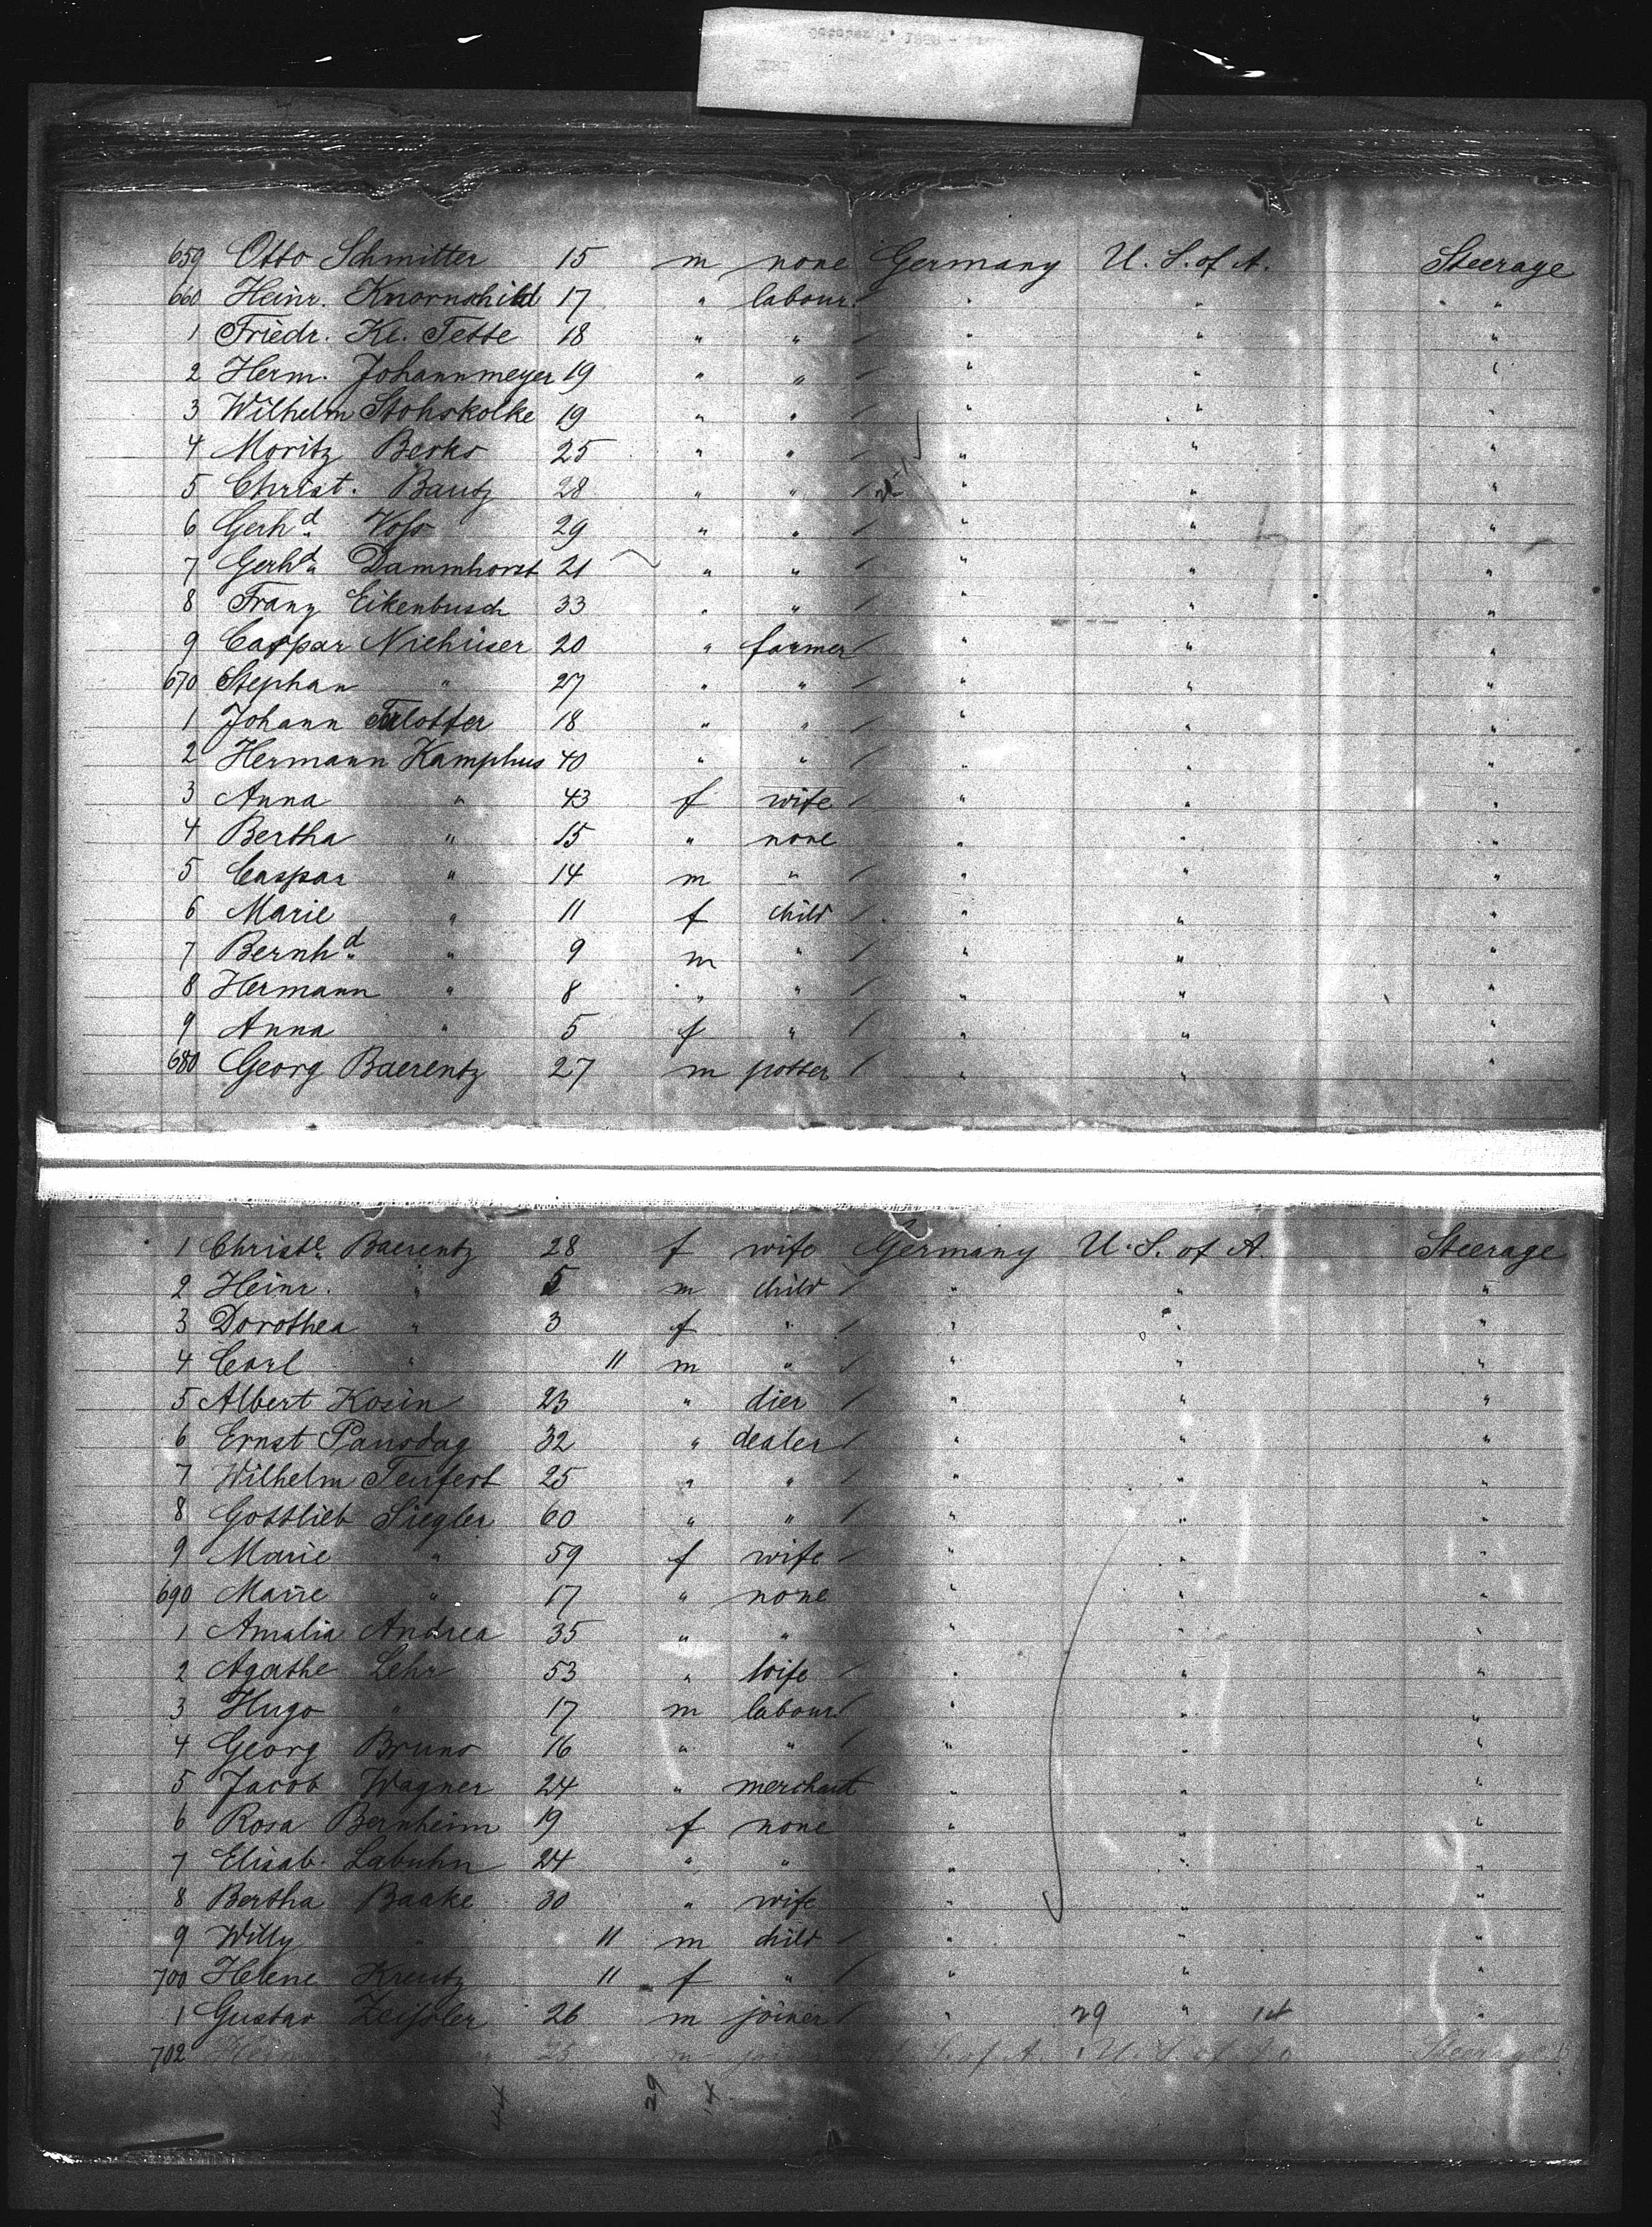 659 Otto Schmitter 15 m none Germany U. S. of A. Steerage
660 Heinr. Knornschild 17 " labour. " " "
1 Friedr. Kl. Tebbe 18 " " " " "
2 Herm. Johannmeyer 19 " " " " "
3 Wilhelm Stohskolke 19 " " " " "
4 Moritz Berks 25 " " " " "
5 Christ. Bautz 28 " " " " "
6 Gerhd. Voss 29 " " " " "
7 Gerhd. Dammhorst 21 " " " " "
8 Franz Eikenbusch 33 " " " " "
9 Caspar Niehüser 20 " farmer " " "
670 Stephan " 27 " " " " "
1 Johann 18 " " " " "
2 Hermann Kamphus 40 " " " " "
3 Anna " 43 f wife " " "
4 Bertha " 15 " none " " "
5 Caspar " 14 m " " " "
6 Marie " 11 f child " " "
7 Bernhd. " 9 m " " " "
8 Hermann " 8 " " " " "
9 Anna " 5 f " " " "
680 Georg Baerentz 27 m potter " " "
1 Christe. Baerentz 28 f wife Germany U. S. of A. Steerage
2 Heinr. " 5 m child " " "
3 Dorothea " 3 f " " " "
4 Carl " 11 m " " " "
5 Albert Kosin 23 " dier " " "
6 Ernst Pansdag 32 " dealer " " "
7 Wilhelm Teufert 25 " " " " "
8 Gottlieb Siegler 60 " " " " "
9 Marie " 59 f wife " " "
690 Marie " 17 " none " " "
1 Amalia Andrea 35 " " " " "
2 Agathe Lehr 53 " wife " " "
3 Hugo " 17 m labour " " "
4 Georg Bruns 16 " " " " "
5 Jacob Wagner 24 " merchant " " "
6 Rosa Bernheim 19 f none " " "
7 Elisab. Labuhn 24 " " " " "
8 Bertha Baake 30 " wife " " "
9 Willy " 11 m child " " "
700 Helene Kreutz 11 f " " " "
1 Gustav Zeissler 26 m joiner " 29 " 14 "
702 25 m S. of A. U. S. of A. Steerage
44 29 14